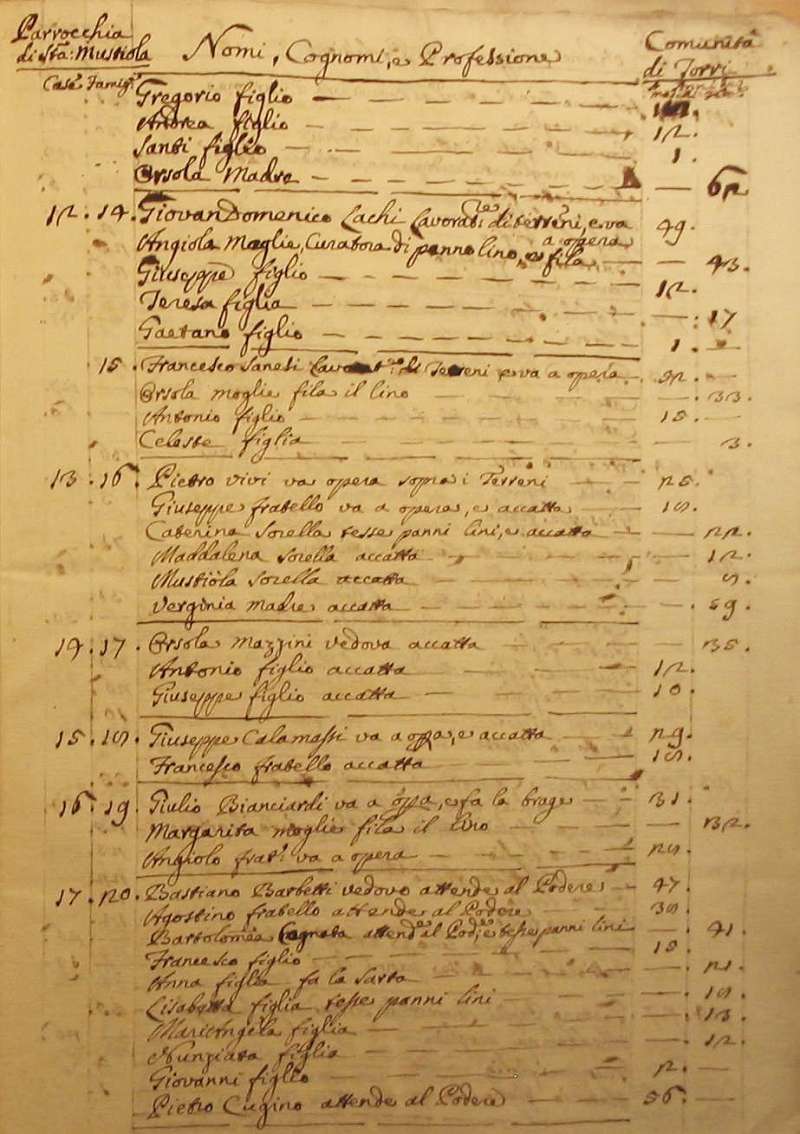 Parrocchia
di Sta: Mustiola
Nomi, Cognomi, e Professione
Comunità
di Torri
Case Famigl
Gregorio figlio
Andrea figlio 12.
Santi figlio 1.
Orsola Madre 62
12. 14. GiovanDomenico Lachi Lavorat:re di terreni, e va 49.
a opera
Angiola Moglie, Curatora di panno lino, e fila 43.
Giuseppe figlio 12.
Teresa figlia 17
Gaetano figlio 1.
15. Francesco Sanesi Lavorat:re di Terreni e va a opera 32.
Orsola moglie fila il lino 33.
Antonio figlio 15.
Celeste figlia 3.
13. 16. Pietro Vivi va opera sopra i Terreni 25.
Giuseppe fratello va a opera, e accatta 18.
Caterina Sorella tesse panni lini, e accatta 22.
Maddalena Sorella accatta 12.
Mustiola Sorella accatta 8.
Verginia madre accatta 59.
14. 17. Orsola Mazzini vedova accatta 35.
Antonio figlio accatta 12.
Giuseppe figlio accatta 10.
15. 18. Giuseppe Calamassi va a opa, e accatta 29.
Francesco fratello accatta 18.
16. 19. Giulio Bianciardi va a opa, e fa la brage 31.
Margarita moglie fila il lino 32.
Angiolo frat: va a opera 28.
17. 20. Bastiano Barbetti vedovo attende al Podere 47.
Agostino fratello attende al Podere 38.
Bartolomea Cognata attende al Pod:e e tesse panni lini 41.
Francesco figlio 15.
Anna figlia fa la Sarta 21.
Lisabetta figlia tesse panni lini 18.
Mariangela figlia 13.
Nunziata figlia 12.
Giovanni figlio 2.
Pietro Cugino attende al Podere 56.